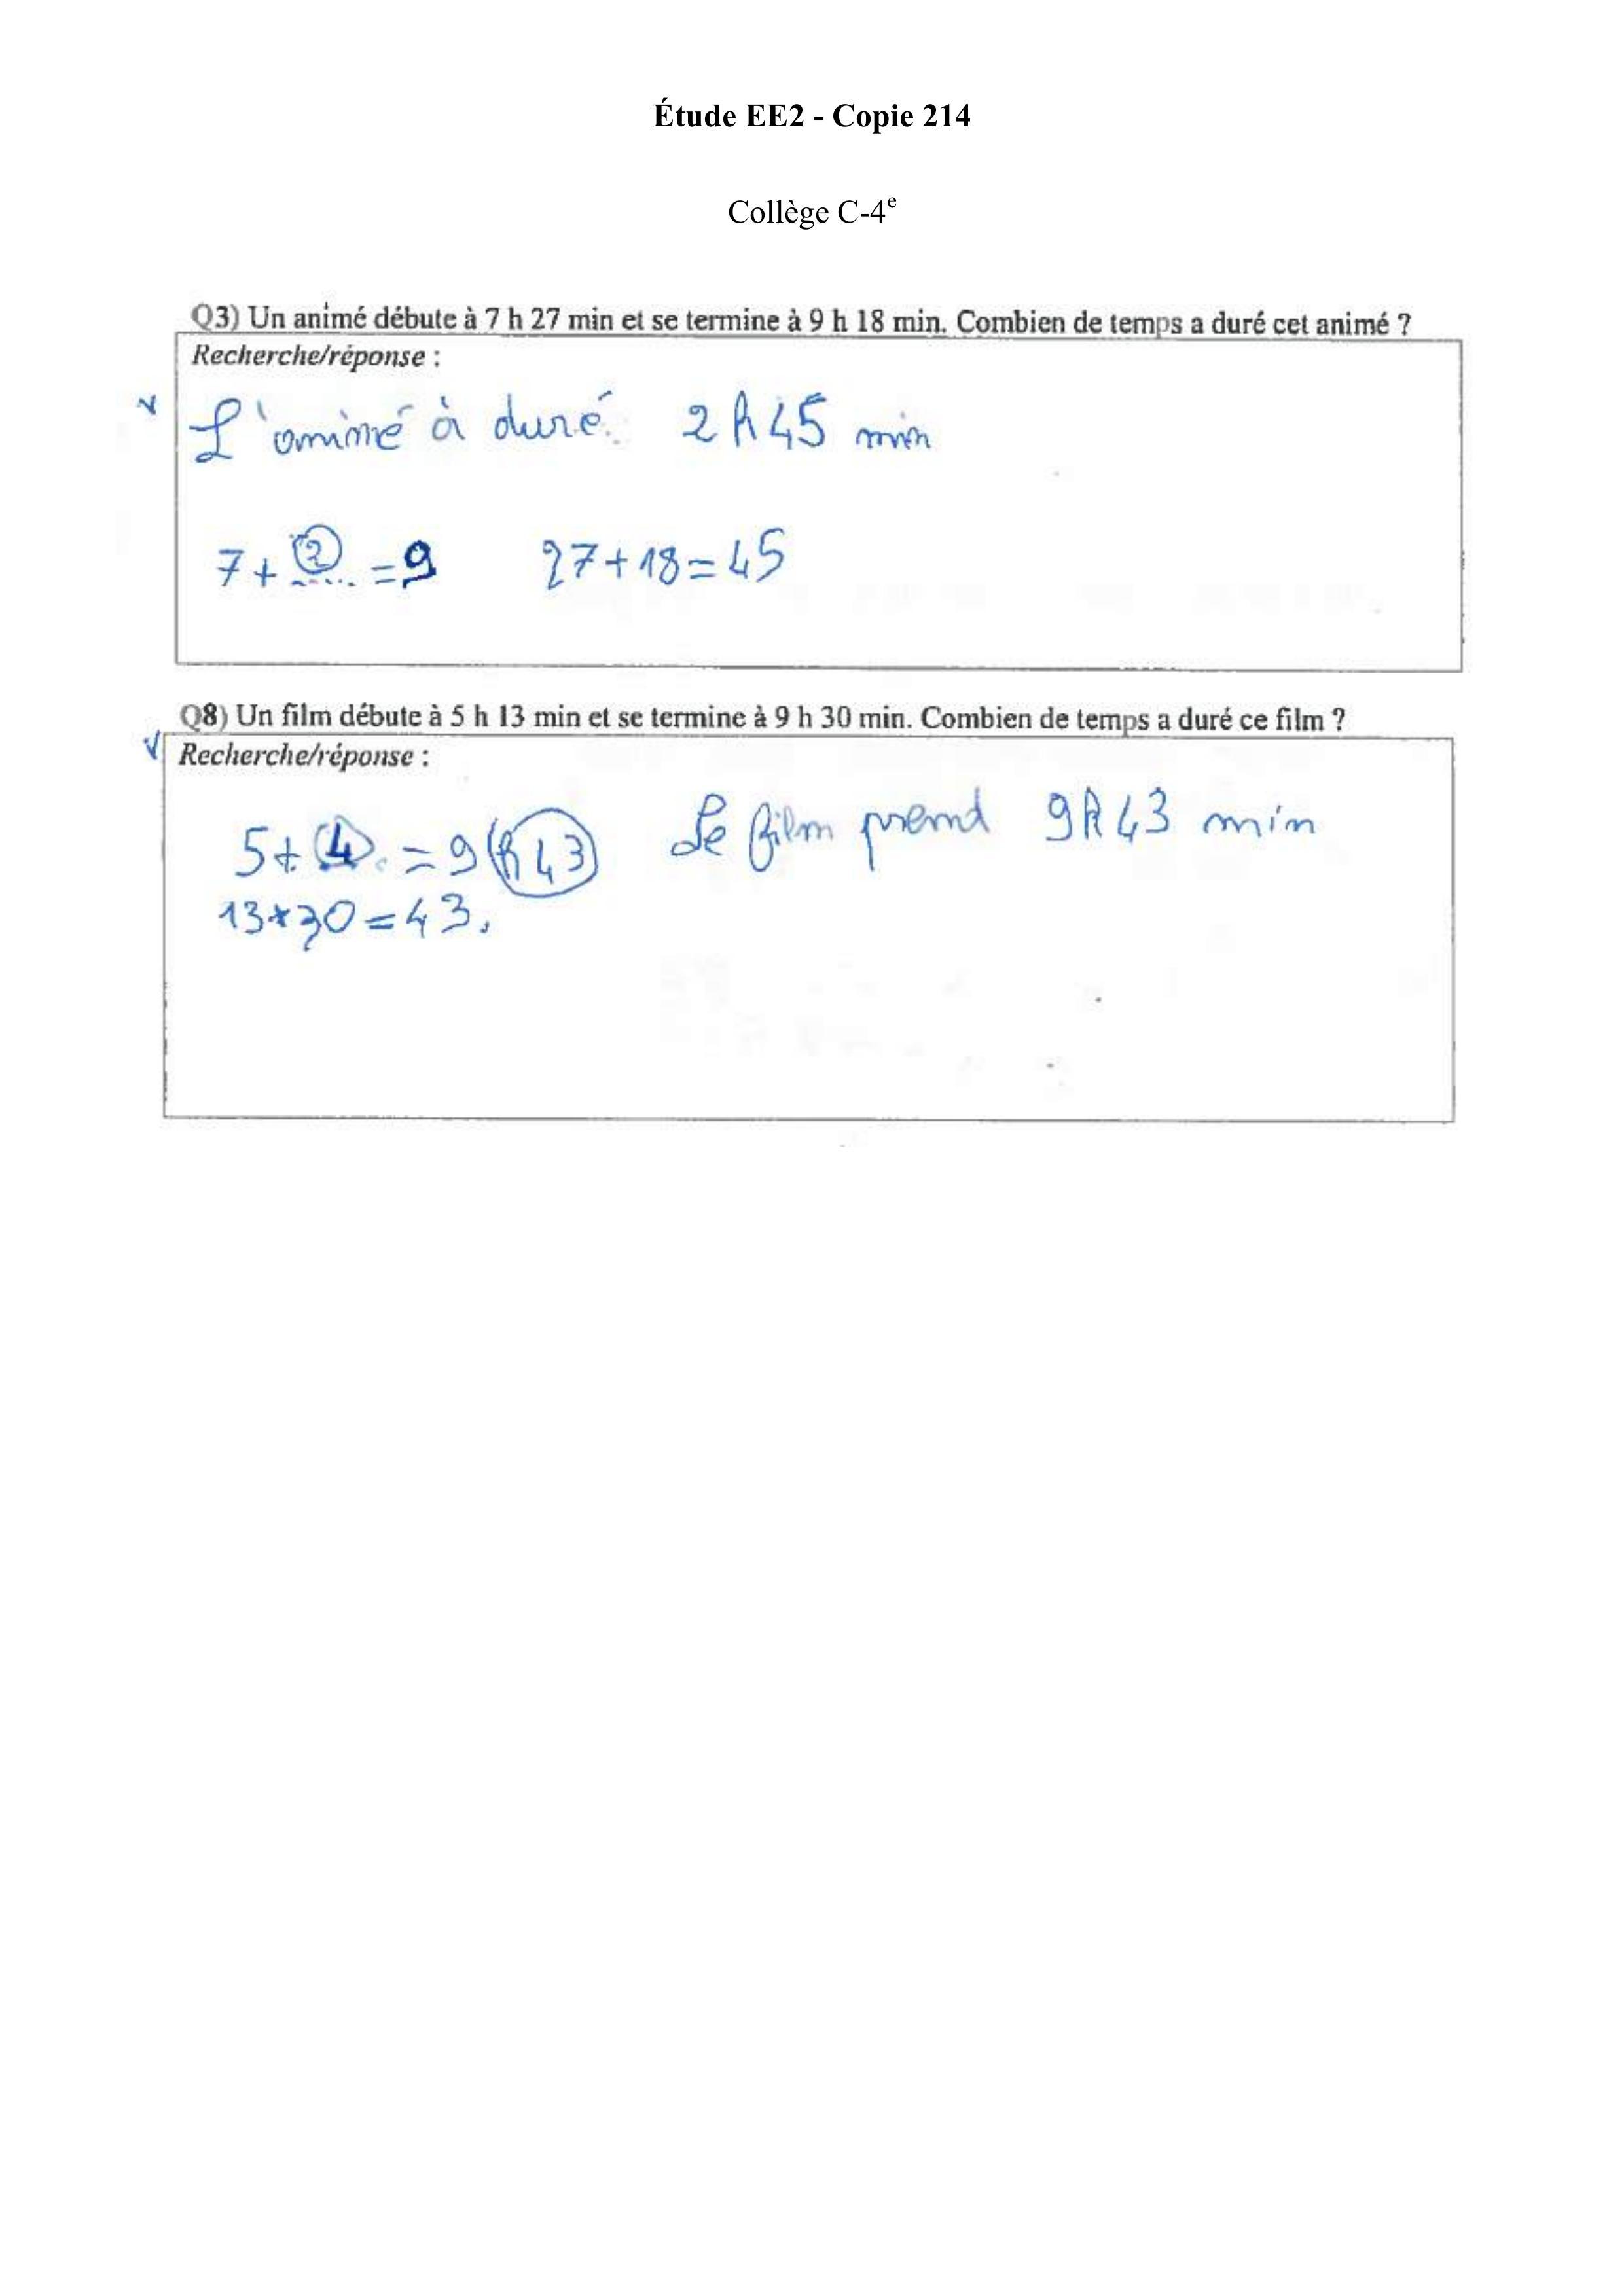 Étude EE2 - Copie 214
Collège C-4e
Q3) Un animé débute à 7 h 27 min et se termine à 9 h 18 min. Combien de temps a duré cet animé ?
Recherche/réponse :
L'animé à duré 2h45 min
7+2=9 27+18=45
Q8) Un film débute à 5 h 13 min et se termine à 9 h 30 min. Combien de temps a duré ce film ?
Recherche/réponse :
5+4=9(h43) Le film prend 9h43 min
13+30=43.